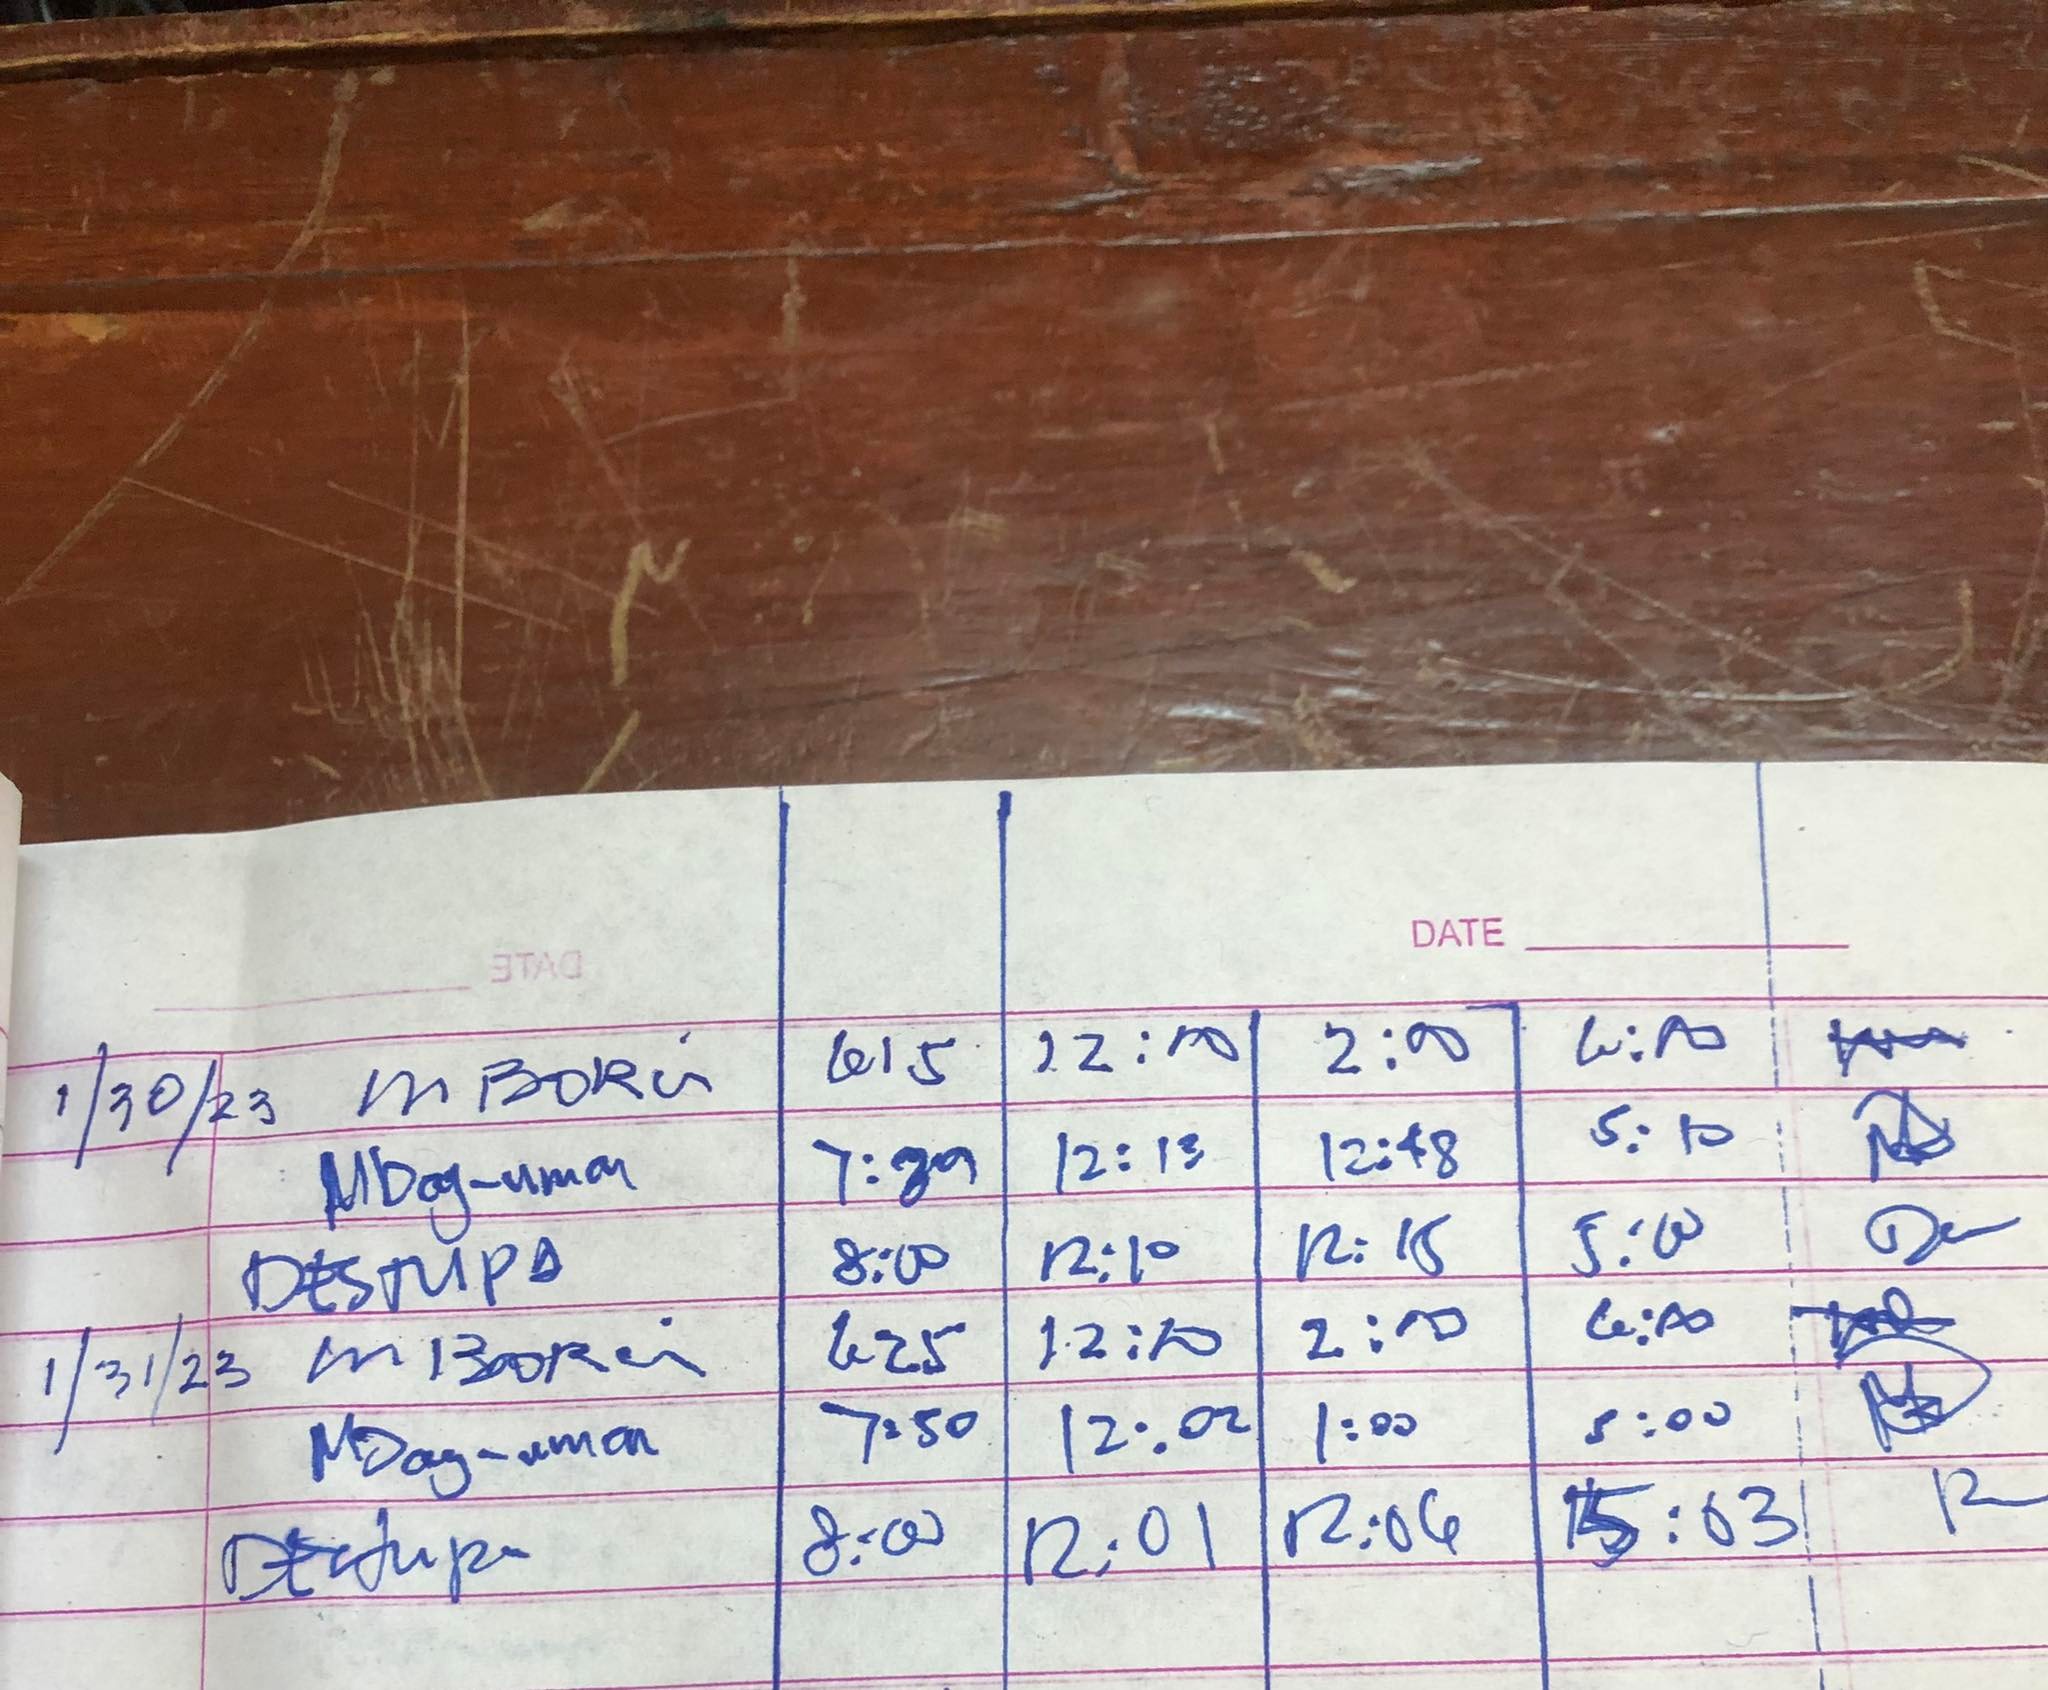 DATE
1/30/23 615 12:00 2:00 6:00
MDag-uman 7:39 12:13 12:48 5:10
DESTUPA 8:00 12:10 12:15 5:00
1/31/23 625 12:10 2:10 6:00
MDag-uman 7:50 12:02 1:00 5:00
Destupa 8:00 12:01 12:06 5:03